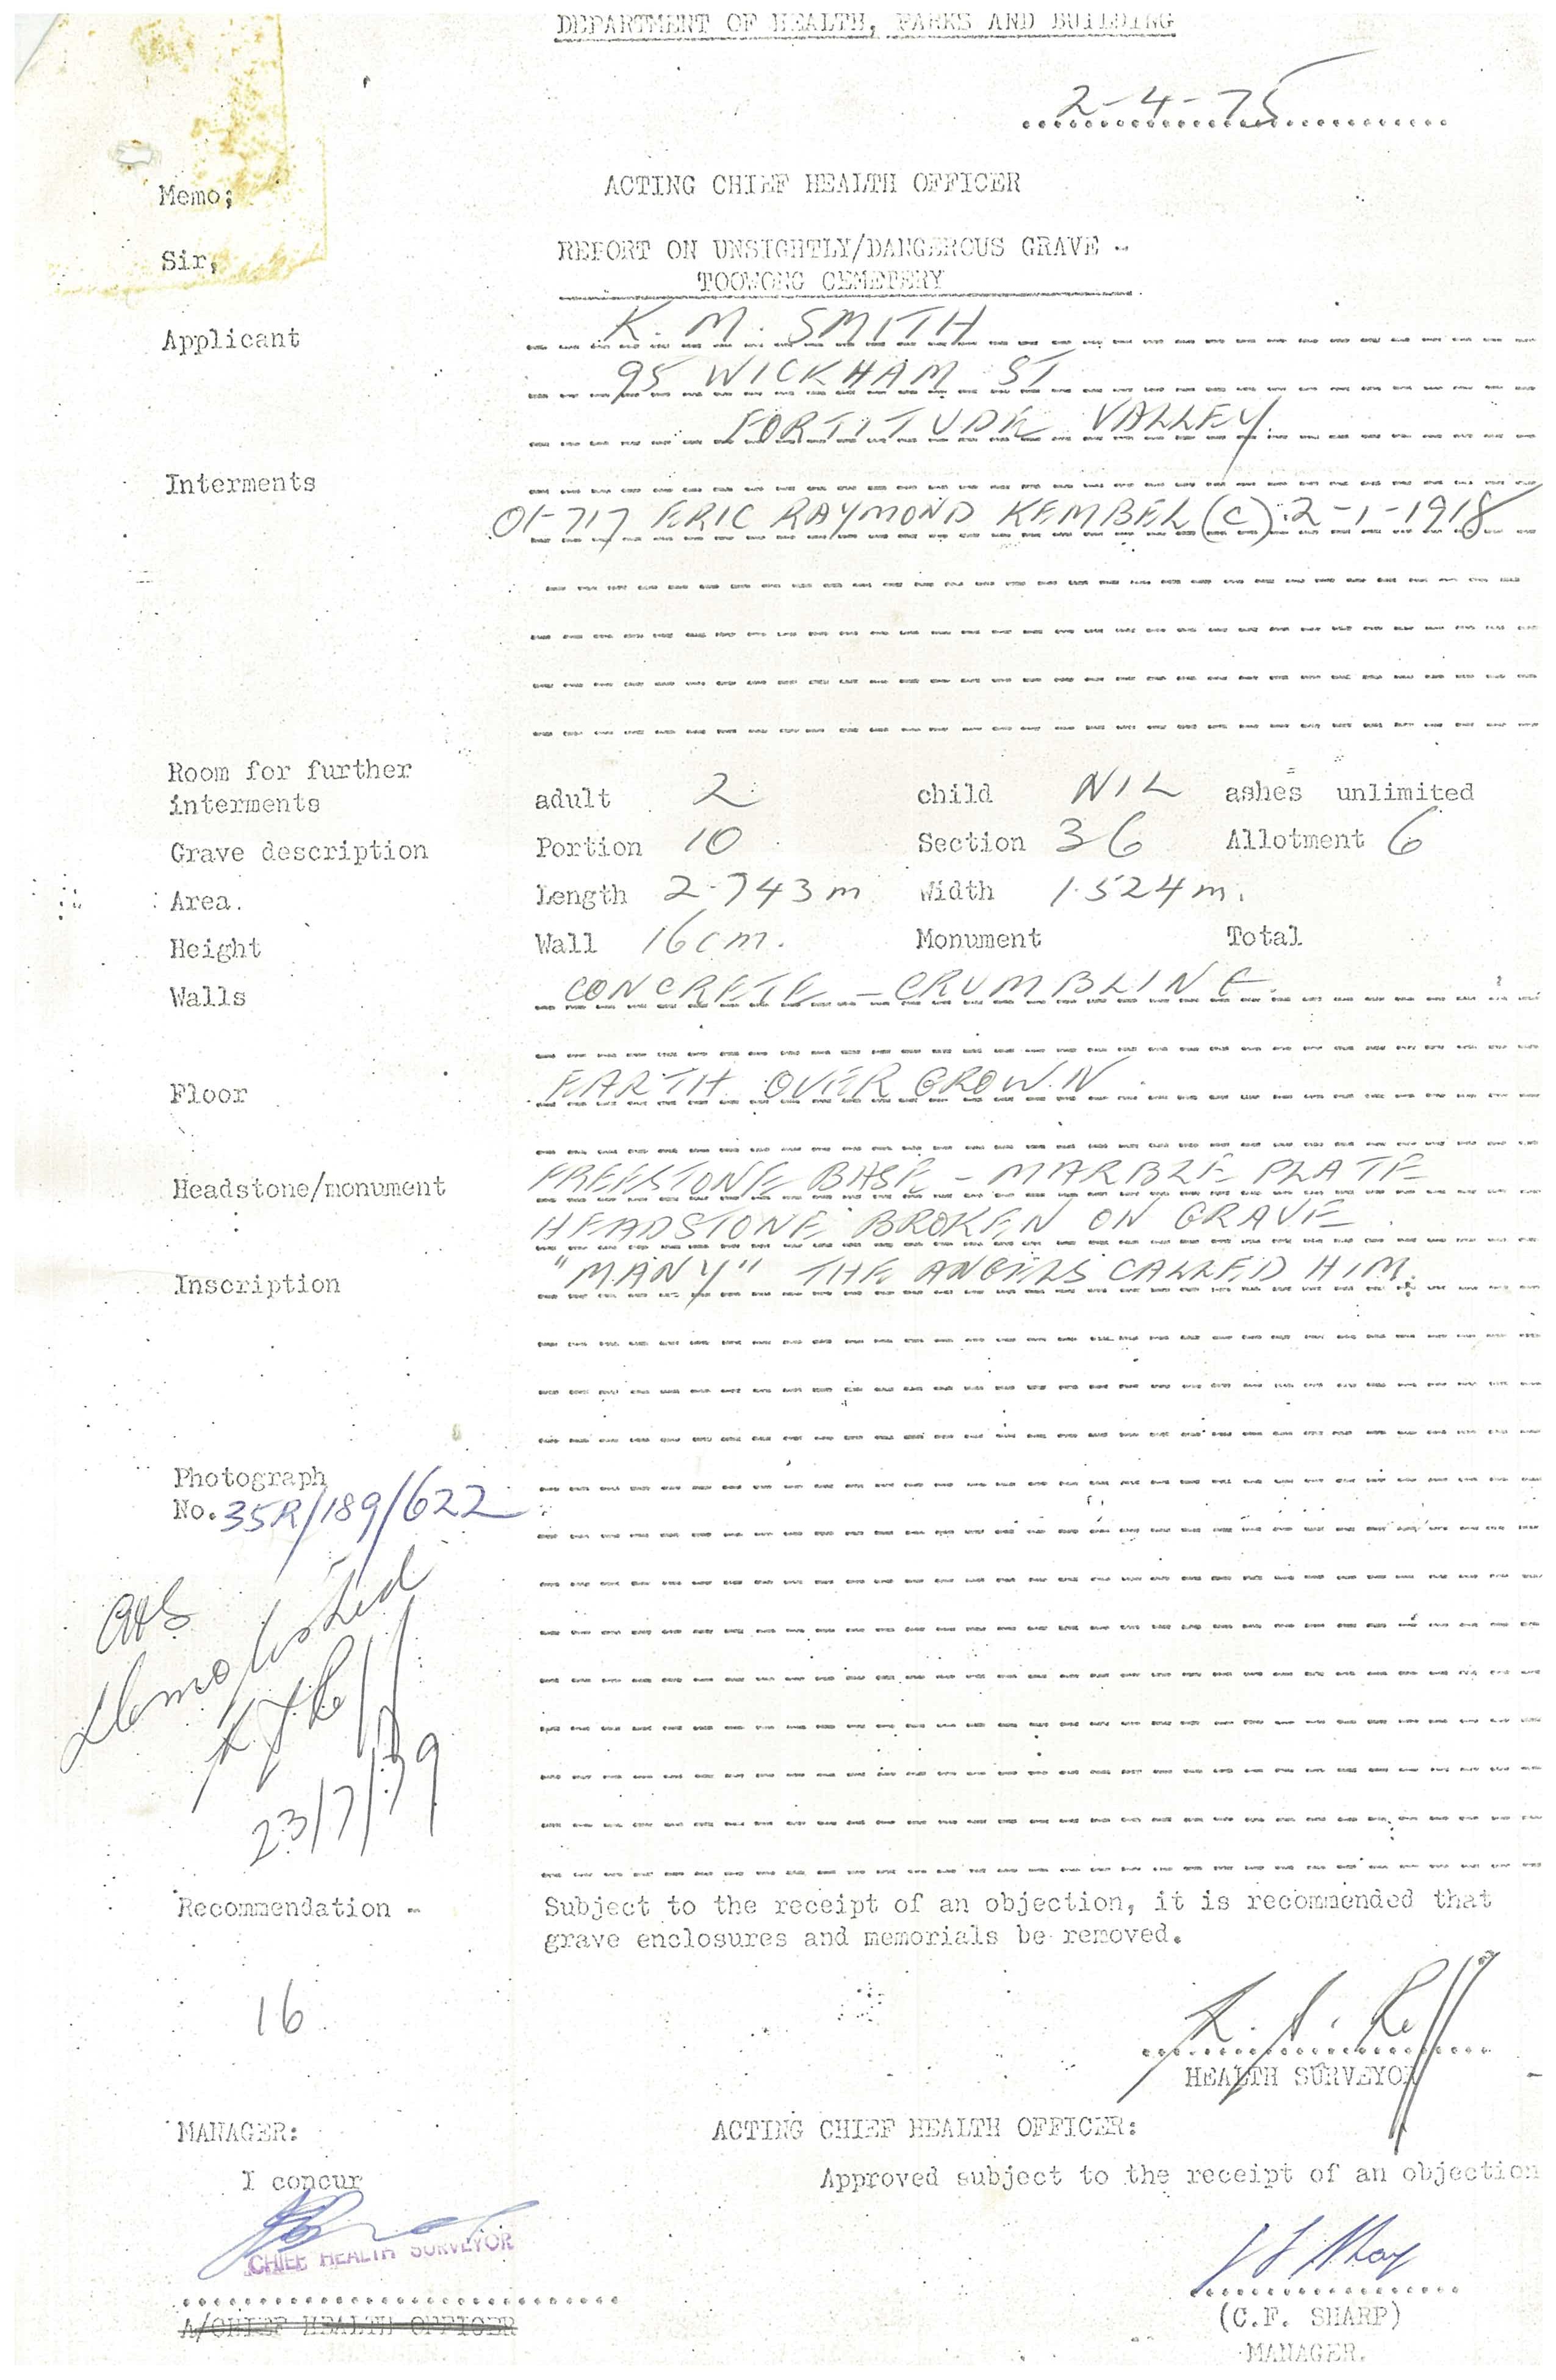 DEPARTMENT OF HEALTH, PARKS AND BUILDING
2-4-75
Memo;
ACTING CHIEF HEALTH OFFICER
Sir,
REPORT ON UNSIGHTLY/DANGEROUS GRAVE -
TOOWONG CEMETERY
Applicant K. M. SMITH
95 WICKHAM ST
FORTITUDE VALLEY.
Interments
01-717 ERIC RAYMOND KEMBEL (C) 2-1-1918
Room for further
interments adult 2 child NIL ashes unlimited
Grave description Portion 10 Section 36 Allotment 6
Area. Length 2.743m Width 1.524m.
Height Wall 16cm. Monument Total
Walls CONCRETE - CRUMBLING.
Floor EARTH OVERGROWN.
Headstone/monument FREESTONE BASE - MARBLE PLATE
HEADSTONE BROKEN ON GRAVE.
Inscription "MANY" THE ANGELS CALLED HIM.
Photograph
No. 35R/189/622
demolished
23/7/79
Recommendation - Subject to the receipt of an objection, it is recommended that
grave enclosures and memorials be removed.
16
HEALTH SURVEYOR
MANAGER: ACTING CHIEF HEALTH OFFICER:
I concur Approved subject to the receipt of an objection
CHIEF HEALTH SURVEYOR
A/CHIEF HEALTH OFFICER
(C.F. SHARP)
MANAGER.